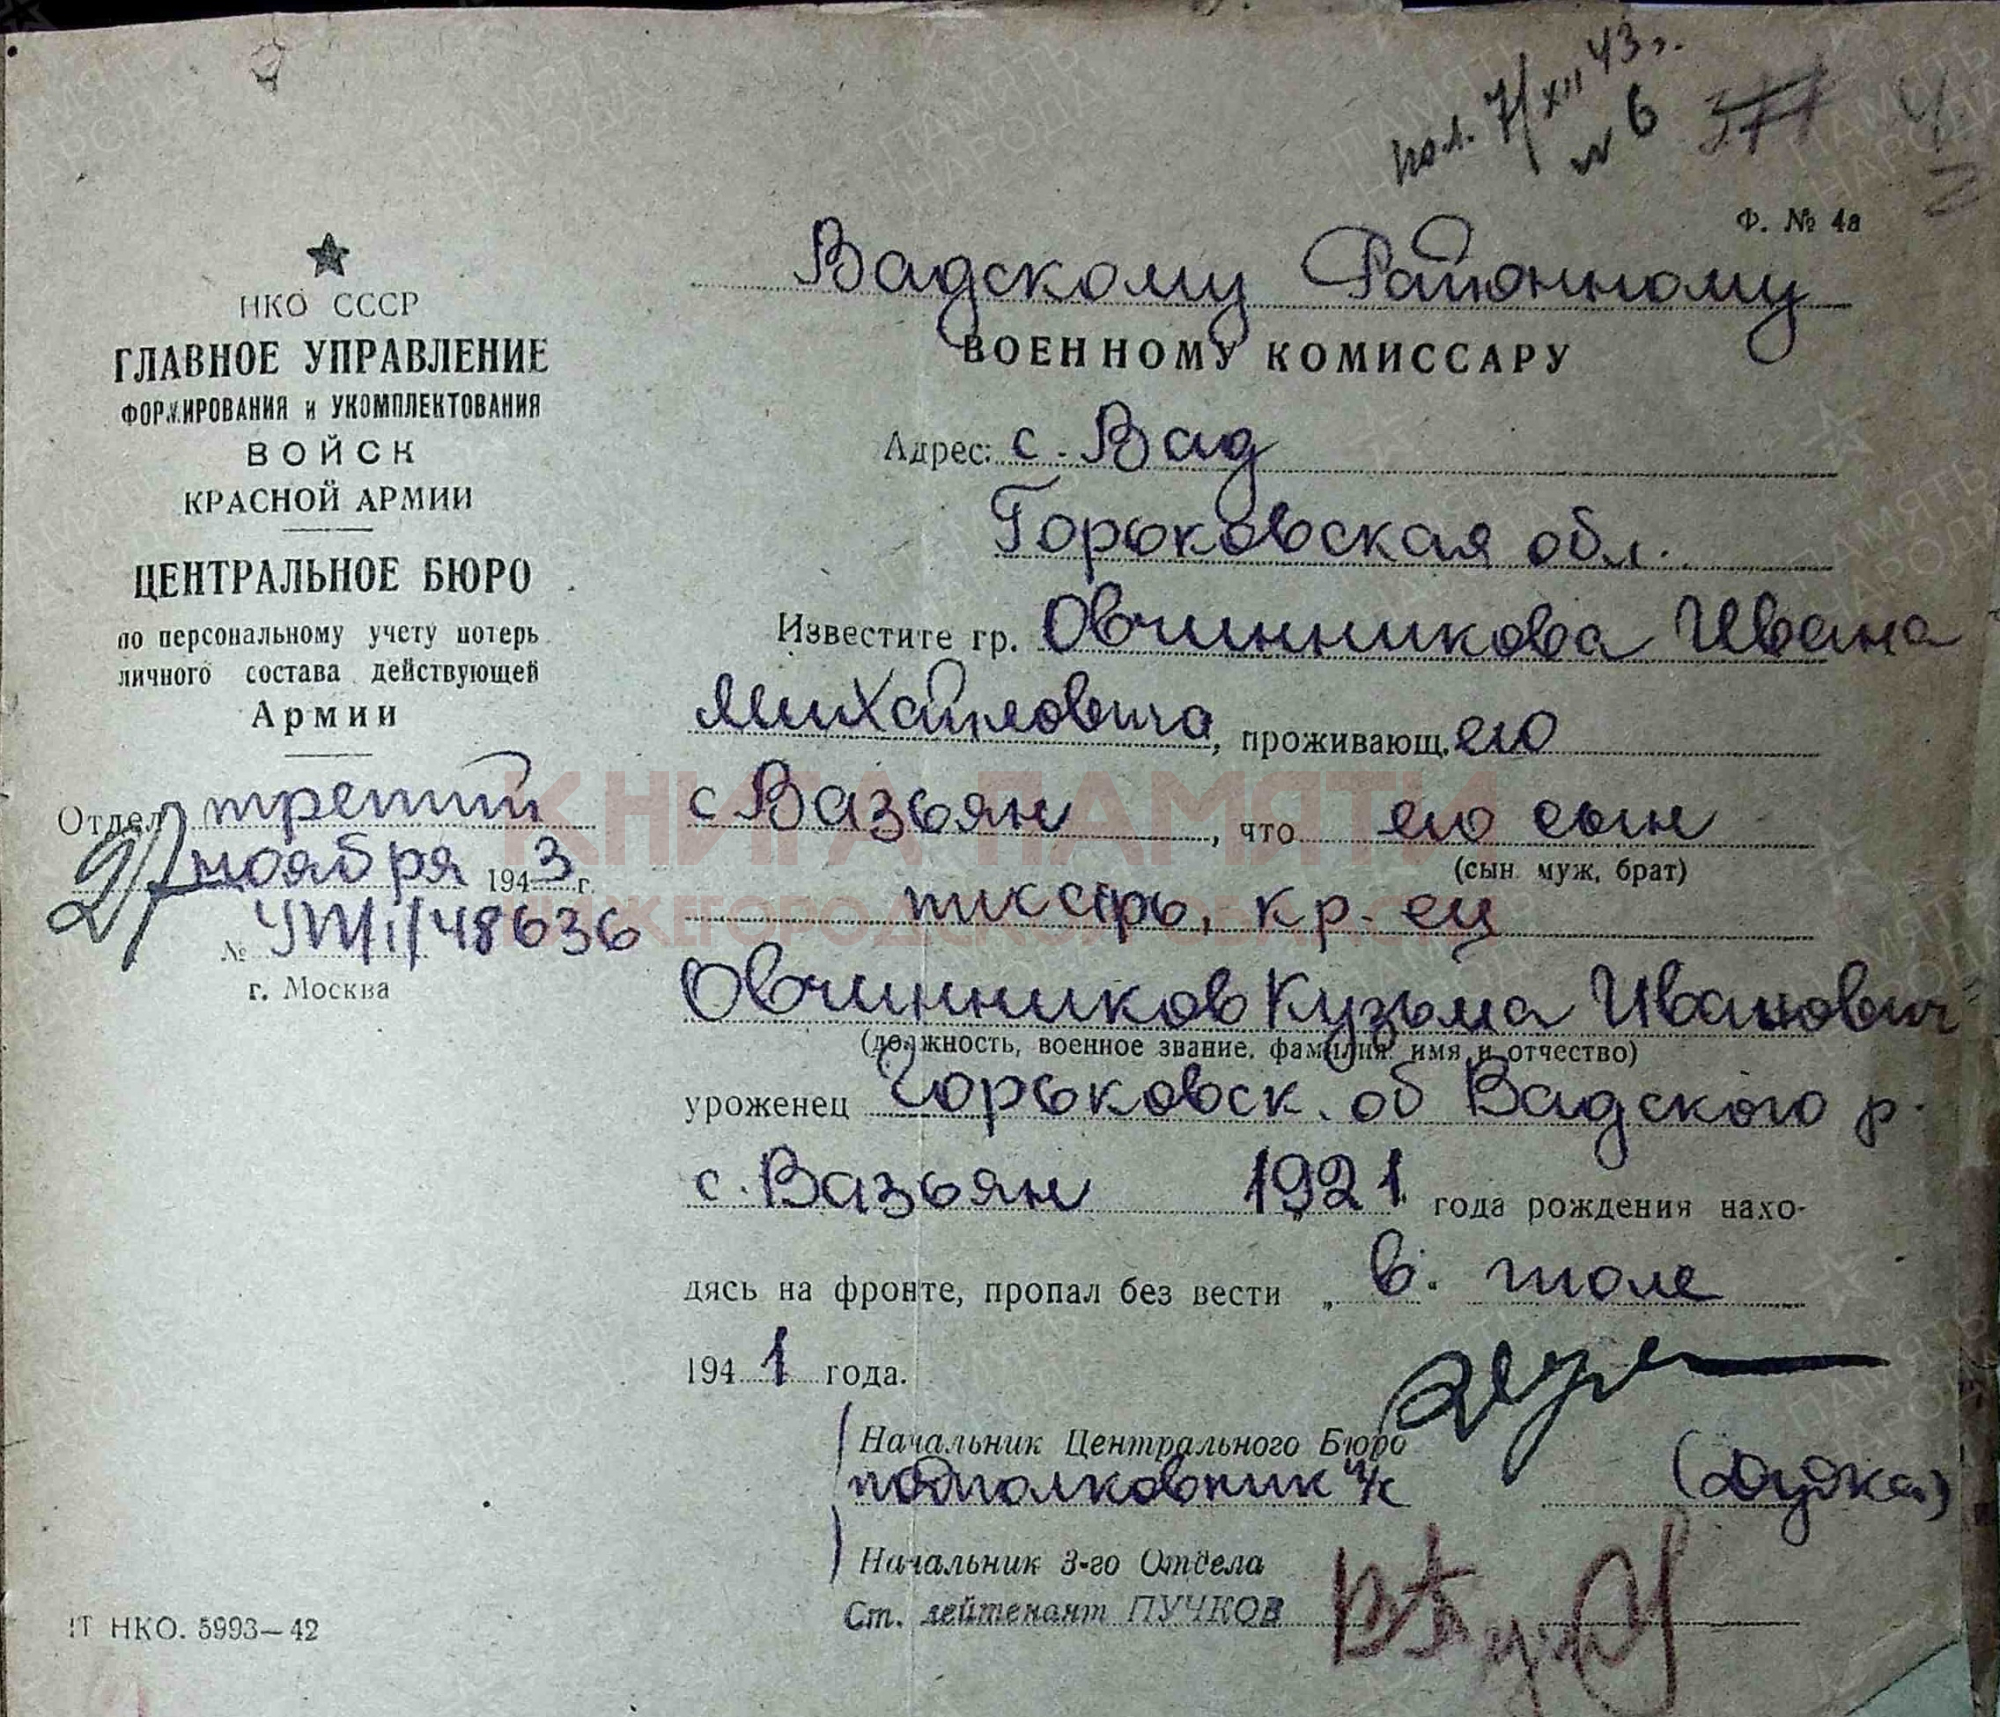 пол. 7/XII 43 г.
№ 6
Ф. № 4а
НКО СССР
ГЛАВНОЕ УПРАВЛЕНИЕ
ФОРМИРОВАНИЯ и УКОМПЛЕКТОВАНИЯ
ВОЙСК
КРАСНОЙ АРМИИ
ЦЕНТРАЛЬНОЕ БЮРО
по персональному учету потерь
личного состава действующей
Армии
Отдел третий
27 ноября 1943 г.
№ 48636
г. Москва
Вадскому Районному
ВОЕННОМУ КОМИССАРУ
Адрес: с. Вад
Горьковская обл.
Известите гр. Овчинникова Ивана
Михайловича, проживающ.его
с Вазьян, что его сын
(сын муж, брат)
кр-ец
Овчинников Кузьма Иванович
(должность, военное звание, фамилия имя и отчество)
уроженец Горьковск. об Вадского р.
с. Вазьян 1921 года рождения нахо-
дясь на фронте, пропал без вести „ в. июле
1941 года.
Начальник Центрального Бюро
подполковник и/с (Дудка)
Начальник 3-го Отдела
Ст. лейтенант ПУЧКОВ
IТ НКО. 5993—42
КНИГА ПАМЯТИ
НИЖЕГОРОДСКОЙ ОБЛАСТИ
ПАМЯТЬ НАРОДА